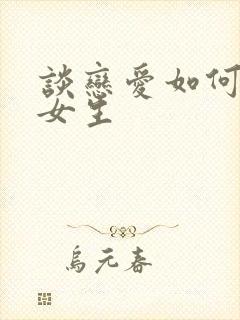 談戀愛如何
女生
烏元春